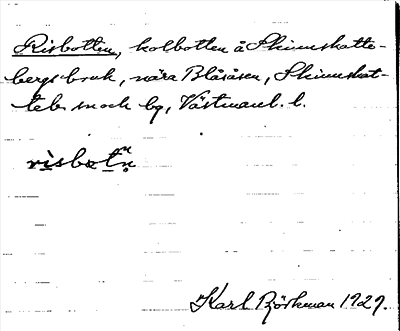 Risbotten, kolbotten å Skinnskatte-
bergs bruk, nära Blåsåsen, Skinnskat-
tebs sn och bg, Västmanl. l.
Karl Björkman 1929.